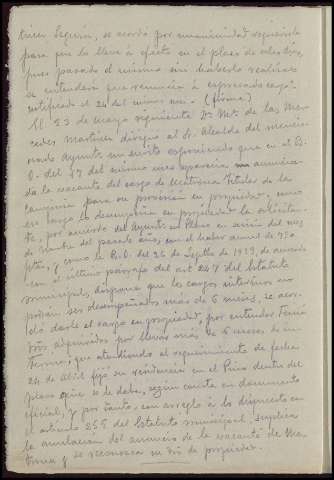 Segura, se acordó por unanimidad requerirla
para que la lleve á efecto en el plazo de
pues pasado el mismo sin haberlo realizado
se entenderá que renuncia á expresado cargo.
certificado el 24 del mismo mes. (firma)
El 23 de mayo siguiente Dª de las Mer
cedes Martínez dirigió al Sr. Alcalde del mencio
nado Ayunto un escrito exponiendo que en el B.
O. del 17 del mismo mes aparecía anuncia
da la vacante del cargo de Matrona Titular de la
para su provisión en propiedad, cuyo
cargo lo desempeña en propiedad la solicitan
te, por acuerdo del Ayunto en Pleno en del mes
de del pasado año, con el haber anual de 750
ptas, y como la R.O. de 26 de Septbre de 1929, de acuerdo
con el último párrafo del art 247 del Estatuto
municipal, dispone que los cargos interinos no
podrán ser desempeñados más de 6 meses, se acor
dó darle el cargo en propiedad, por entender tenía
adquiridos por llevar más de 6 meses de in
terina; que atendiendo al requerimiento de fecha
24 de Abril fijó su residencia en el dentro del
plazo que se le daba, según consta en documento
oficial, y por tanto, con arreglo á lo dispuesto en
el artículo 255 del Estatuto municipal, suplica
la anulación del anuncio de la vacante de Ma
trona y se reconozca su de propiedad.